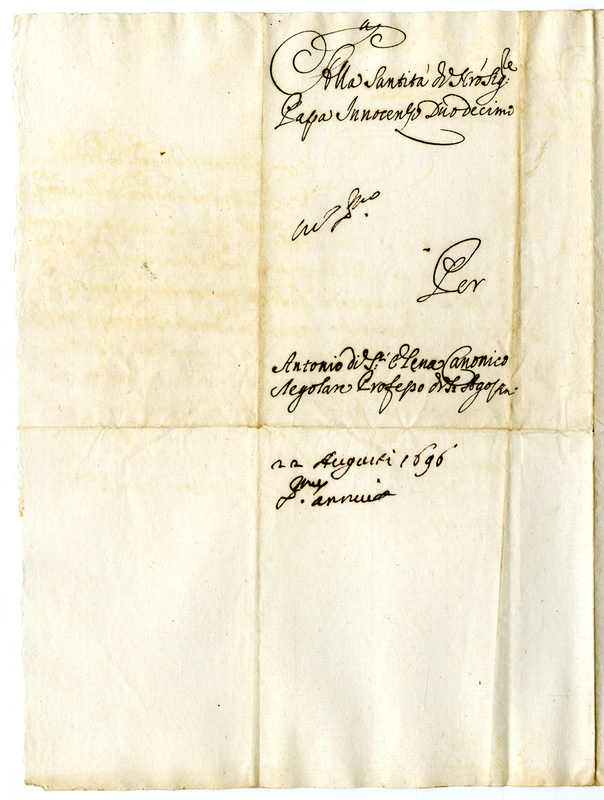 Alla Santità di Nró Sig.re
Papa Innocenzo Duodecimo
Per
Antonio di S. Elena Canonico
Regolare Professo di S. Agosn.
22 Augusti 1696
SS.mus annuit